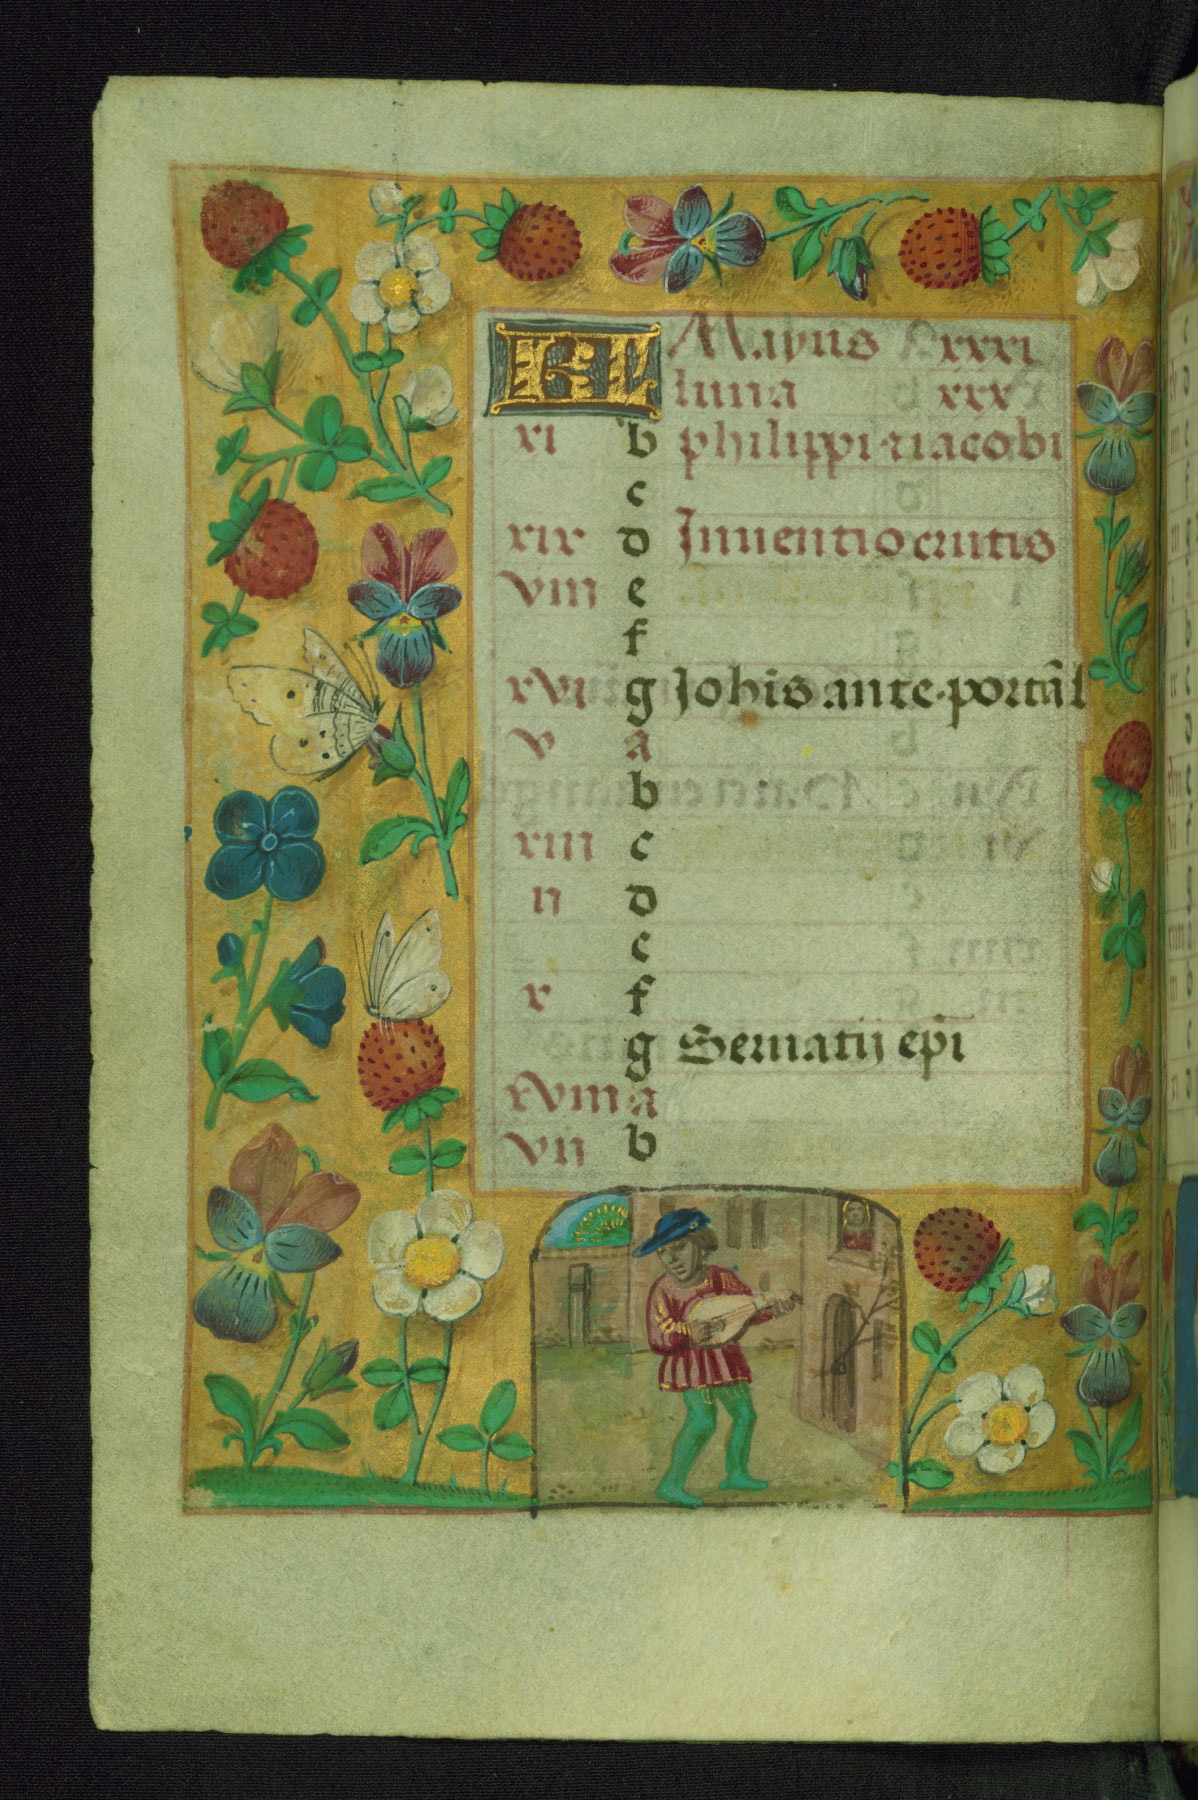 KL Mayus xxxi
luna xxx
xi b philippi · z iacobi
c
xix d Inuentio crucis
viii e
f
xvi g Johis ante · portā l
v a
b
xiii c
ii d
e
x f
g Seruatij ep̄i
xviii a
vii b